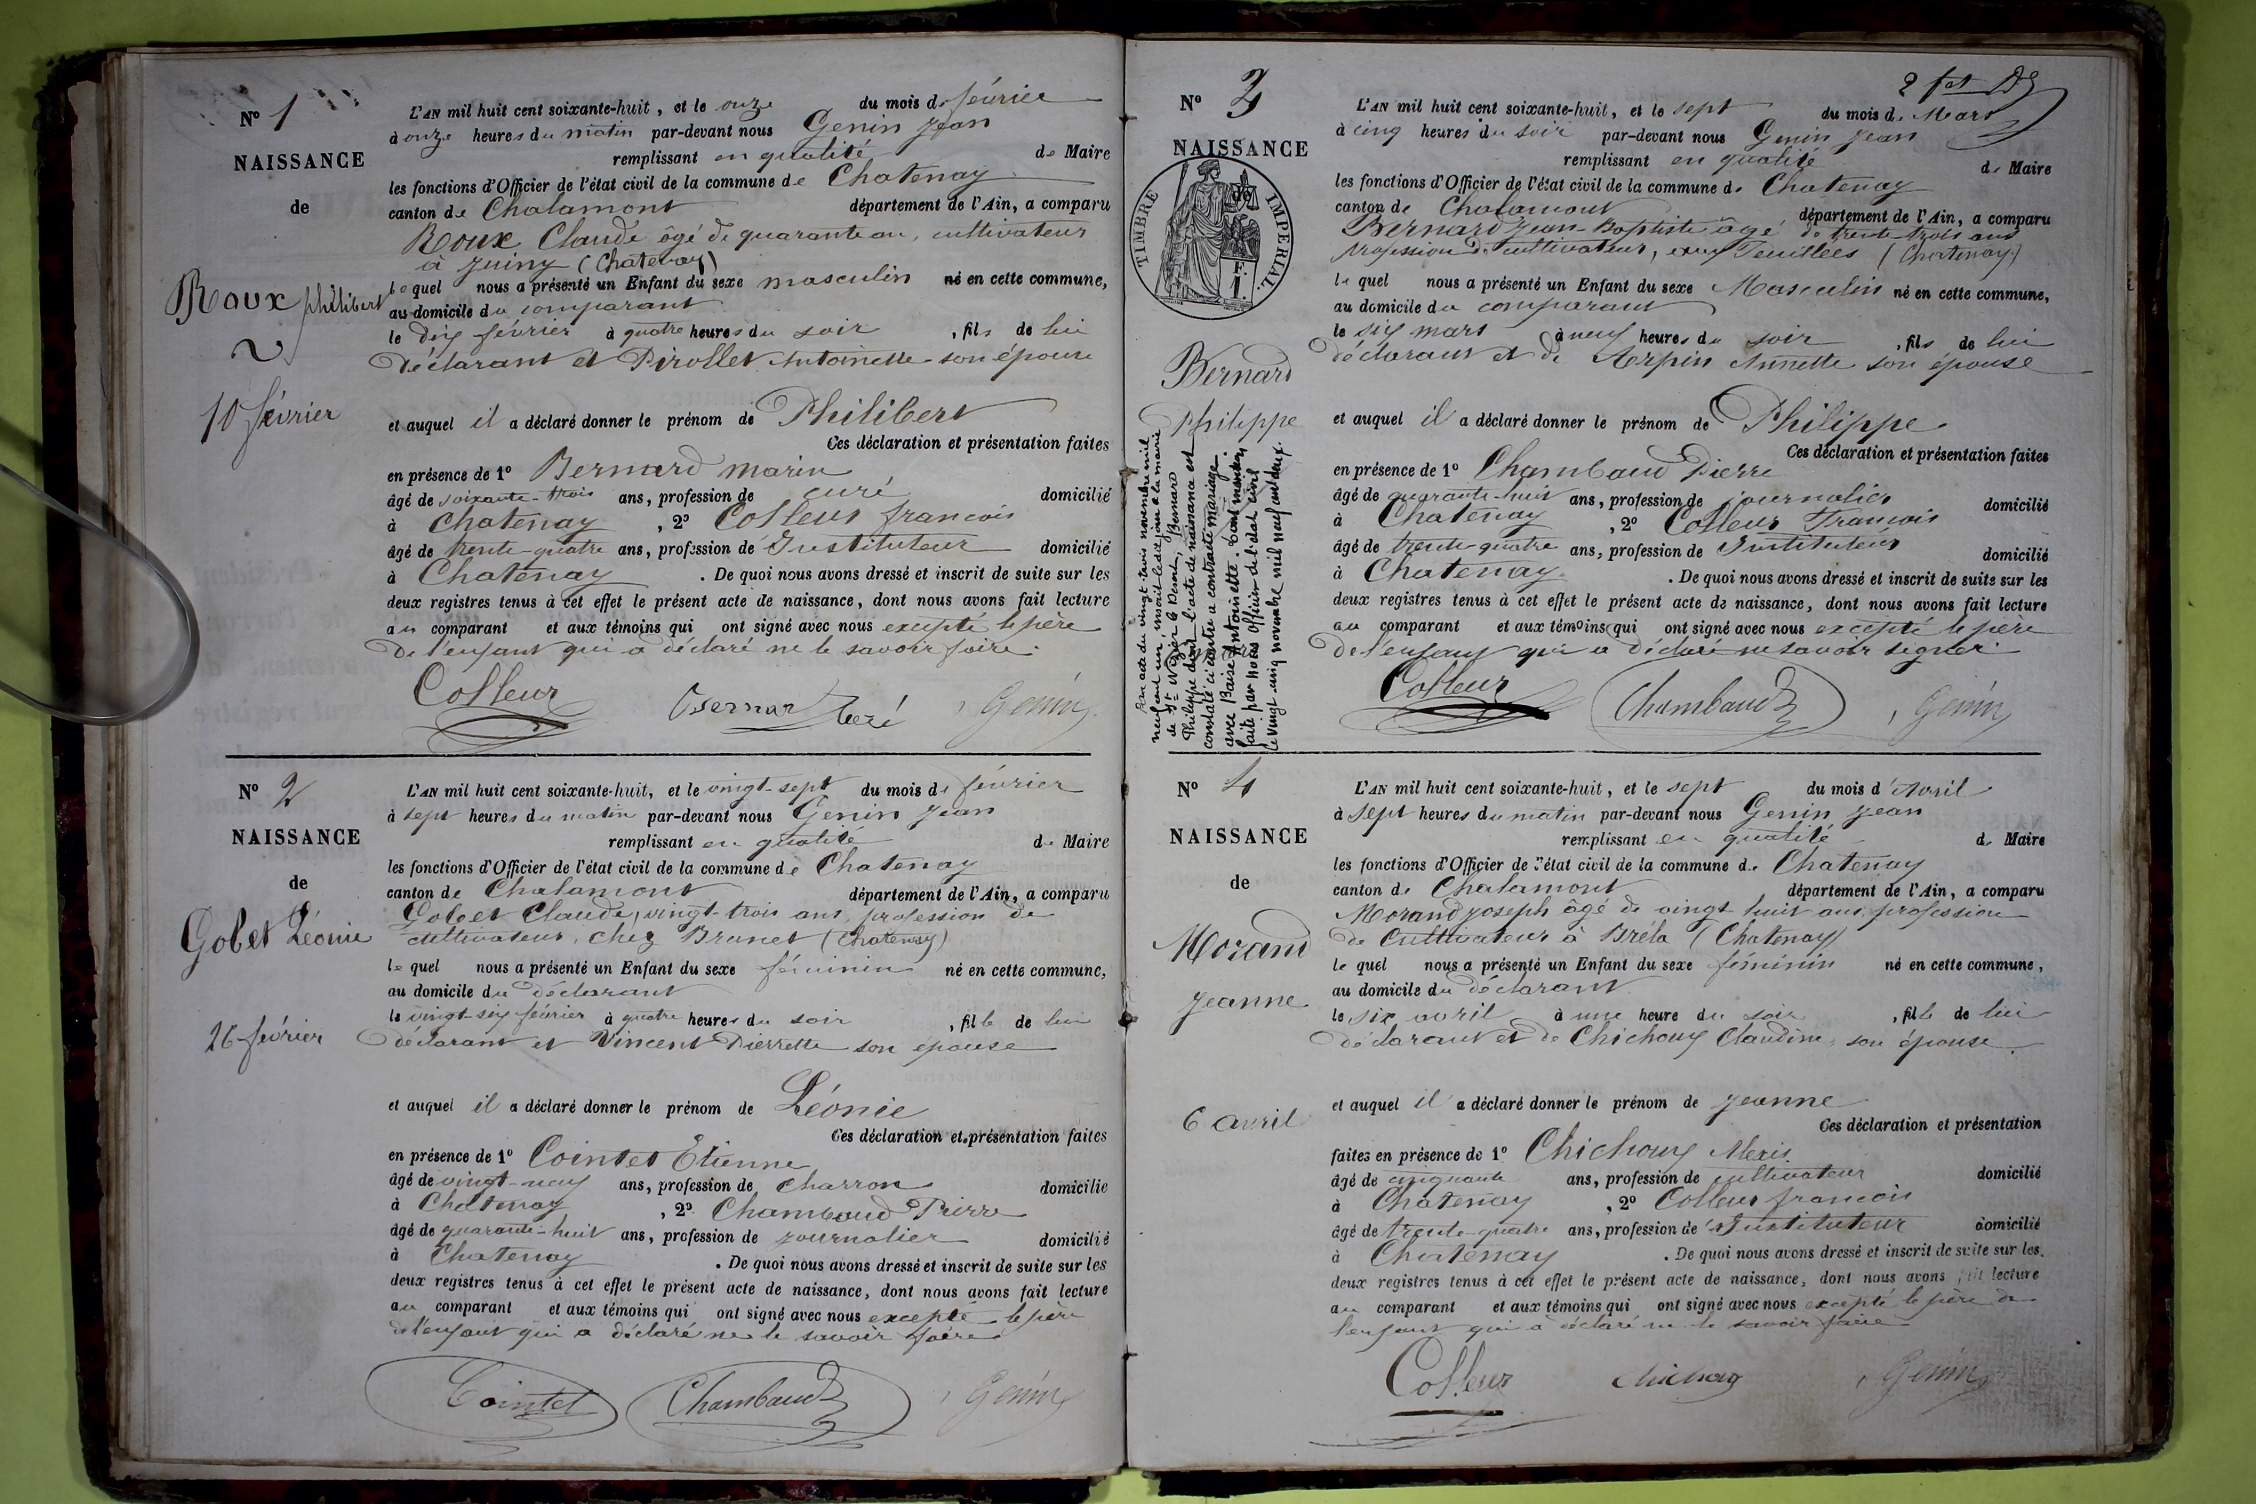 N° 1
NAISSANCE
de
Roux Philibert
10 février
L'AN mil huit cent soixante-huit, et le onze du mois de février
à onze heures du matin par-devant nous Genin Jean
remplissant en qualité de Maire
les fonctions d'Officier de l'état civil de la commune de Chatenay
canton de Chalamont département de l'Ain, a comparu
Roux Claude âgé de quarante an, cultivateur
à Juiny (Chatenay)
le quel nous a présenté un Enfant du sexe masculin né en cette commune,
au domicile du comparant
le dix février à quatre heures du soir, fils de lui
déclarant et Pirollet Antoinette son épouse
et auquel il a déclaré donner le prénom de Philibert
Ces déclaration et présentation faites
en présence de 1° Bernard Marin
âgé de soixante-trois ans, profession de curé domicilié
à Chatenay, 2° Colleur francois
âgé de trente-quatre ans, profession de Instituteur domicilié
à Chatenay. De quoi nous avons dressé et inscrit de suite sur les
deux registres tenus à cet effet le présent acte de naissance, dont nous avons fait lecture
au comparant et aux témoins qui ont signé avec nous excepté le père
de l'enfant qui a déclaré ne le savoir faire.
Colleur Bernard curé Genin
N° 2
NAISSANCE
de
Gobet Léonie
26 février
L'AN mil huit cent soixante-huit, et le vingt-sept du mois de février
à sept heures du matin par-devant nous Genin Jean
remplissant en qualité de Maire
les fonctions d'Officier de l'état civil de la commune de Chatenay
canton de Chalamont département de l'Ain, a comparu
Gobet Claude, vingt-trois ans, profession de
cultivateur, chez Brunet (Chatenay)
le quel nous a présenté un Enfant du sexe féminin né en cette commune,
au domicile du déclarant
le vingt-six février à quatre heures du soir, fille de lui
déclarant et Vincent Pierrette son épouse
et auquel il a déclaré donner le prénom de Léonie
Ces déclaration et présentation faites
en présence de 1° Cointet Etienne
âgé de vingt-neuf ans, profession de charron domicilié
à Chatenay, 2° Chambaud Pierre
âgé de quarante-huit ans, profession de journalier domicilié
à Chatenay. De quoi nous avons dressé et inscrit de suite sur les
deux registres tenus à cet effet le présent acte de naissance, dont nous avons fait lecture
au comparant et aux témoins qui ont signé avec nous excepté le père
de l'enfant qui a déclaré ne le savoir faire
Cointet Chambaud Genin
N° 3
NAISSANCE
de
TIMBRE IMPERIAL.
Bernard
Philippe
Par acte du vingt trois novembre mil
neuf cent un inscrit le dix jour à la mairie
Philippe dont l'acte de naissance est
constaté ci contre a contracté mariage
avec Baise Antoinette. Dont mention
faite par nous officier de l'état civil
le vingt-cinq novembre mil neuf cent deux.
L'AN mil huit cent soixante-huit, et le sept du mois de Mars
à cinq heures du soir par-devant nous Genin Jean
remplissant en qualité de Maire
les fonctions d'Officier de l'état civil de la commune de Chatenay
canton de Chalamont département de l'Ain, a comparu
Bernard Jean-Baptiste âgé de trente-trois ans
profession de cultivateur, aux Feuillées (Chatenay)
le quel nous a présenté un Enfant du sexe Masculin né en cette commune,
au domicile du comparant
le six mars à neuf heures du soir, fils de lui
déclarant et de Merpin Annette son épouse
et auquel il a déclaré donner le prénom de Philippe
Ces déclaration et présentation faites
en présence de 1° Chambaud Pierre
âgé de quarante-huit ans, profession de journalier domicilié
à Chatenay, 2° Colleur François
âgé de trente-quatre ans, profession de Instituteur domicilié
à Chatenay. De quoi nous avons dressé et inscrit de suite sur les
deux registres tenus à cet effet le présent acte de naissance, dont nous avons fait lecture
au comparant et aux témoins qui ont signé avec nous excepté le père
de l'enfant qui a déclaré ne savoir signer.
Colleur Chambaud Genin
N° 4
NAISSANCE
de
Morand
Jeanne
6 avril
L'AN mil huit cent soixante-huit, et le sept du mois d'Avril
à sept heures du matin par-devant nous Genin Jean
remplissant en qualité de Maire
les fonctions d'Officier de l'état civil de la commune de Chatenay
canton de Chalamont département de l'Ain, a comparu
Morand Joseph âgé de vingt huit ans, profession
de Cultivateur à Bréla (Chatenay)
le quel nous a présenté un Enfant du sexe féminin né en cette commune,
au domicile du déclarant
le six avril à une heure du soir, fille de lui
déclarant et de Chichoux Claudine, son épouse
et auquel il a déclaré donner le prénom de Jeanne
Ces déclaration et présentation
faites en présence de 1° Chichoux Alexis
âgé de cinquante ans, profession de cultivateur domicilié
à Chatenay, 2° Colleur francois
âgé de trente-quatre ans, profession de Instituteur domicilié
à Chatenay. De quoi nous avons dressé et inscrit de suite sur les
deux registres tenus à cet effet le présent acte de naissance, dont nous avons fait lecture
au comparant et aux témoins qui ont signé avec nous excepté le père de
l'enfant qui a déclaré ne le savoir faire
Colleur Chichoux Genin